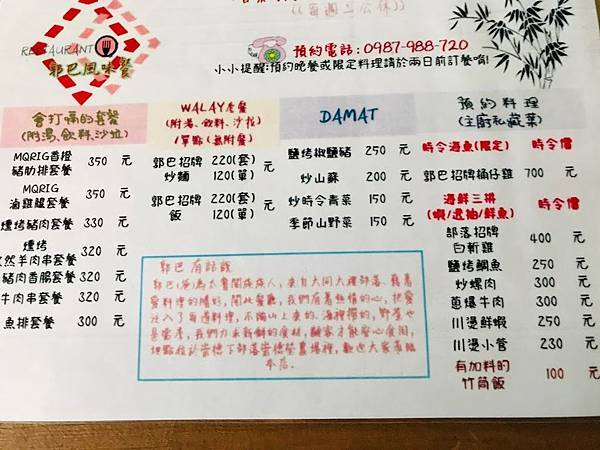 ((每週三公休))
RESTAURANT
郭巴風味餐
預約電話:0987-988-720
小小提醒:預約晚餐或限定料理請於兩日前訂餐唷!
會打嗝的套餐
(附湯、飲料、沙拉)
MQRIG香橙
豬肋排套餐 350 元
MQRIG
滷雞腿套餐 350 元
燻烤豬肉套餐 330 元
燻烤
然羊肉串套餐 320 元
豬肉香腸套餐 320 元
牛肉串套餐 320 元
魚排套餐 300 元
WALAY套餐
(附湯、飲料、沙拉)
/單點(無附餐)
郭巴招牌 220(套)
炒麵 120(單) 元
郭巴招牌 220(套)
飯 120(單) 元
DAMAT
鹽烤椒鹽豬 250 元
炒山蘇 200 元
炒時令青菜 150 元
季節山野菜 150 元
預約料理
(主廚私藏菜)
時令海魚(限定) 時令價
郭巴招牌桶仔雞 700 元
海鮮三拼
(蝦/透抽/鮮魚) 時令價
部落招牌
白斬雞 400 元
鹽烤鯛魚 250 元
炒螺肉 300 元
蔥爆牛肉 300 元
川燙鮮蝦 250 元
川燙小管 230 元
有加料的
竹筒飯 100 元
郭巴 有話說
郭巴(爸)為太魯閣族族人,來自大同大禮部落、藉著
愛料理的嗜好,開此餐廳,我們有著熱情的心,把愛
注入了每道料理,不論山上來的、海裡撈的,野菜也
是當季,我們力求新鮮的食材,顧客才能安心食用,
地點位於崇德下部落崇德瑩農場裡,歡迎大家蒞臨
本店。